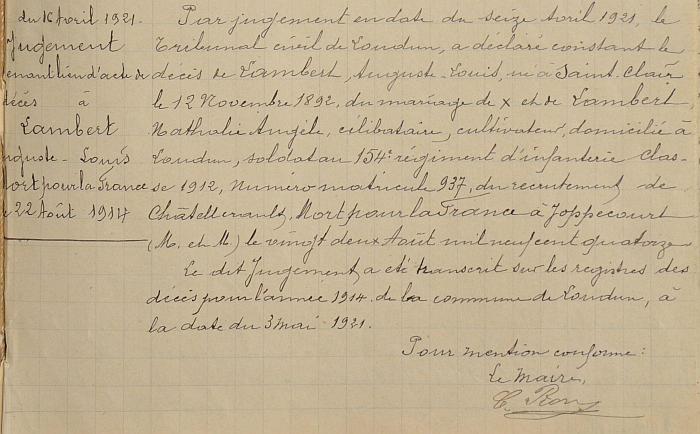 du 16 Avril 1921.
Jugement
tenant lieu d'acte de
décès à
Lambert
Auguste-Louis
Mort pour la France
le 22 Août 1914
Par jugement en date du seize Avril 1921, le
Tribunal civil de Loudun, a déclaré constant le
décès de Lambert, Auguste-Louis, né à Saint-Clair
le 12 Novembre 1892, du mariage de x et de Lambert
Nathalie Angèle, célibataire, cultivateur, domicilié à
Loudun, soldat au 154e régiment d'infanterie Clas-
se 1912, Numéro matricule 937, du recrutement de
Châtellerault, Mort pour la France à Joppécourt
(M. et M.) le vingt deux Août mil neuf cent quatorze
Le dit Jugement, a été transcrit sur les registres des
décès pour l'année 1914 de la commune de Loudun, à
la date du 3 mai 1921.
Pour mention conforme:
Le Maire,